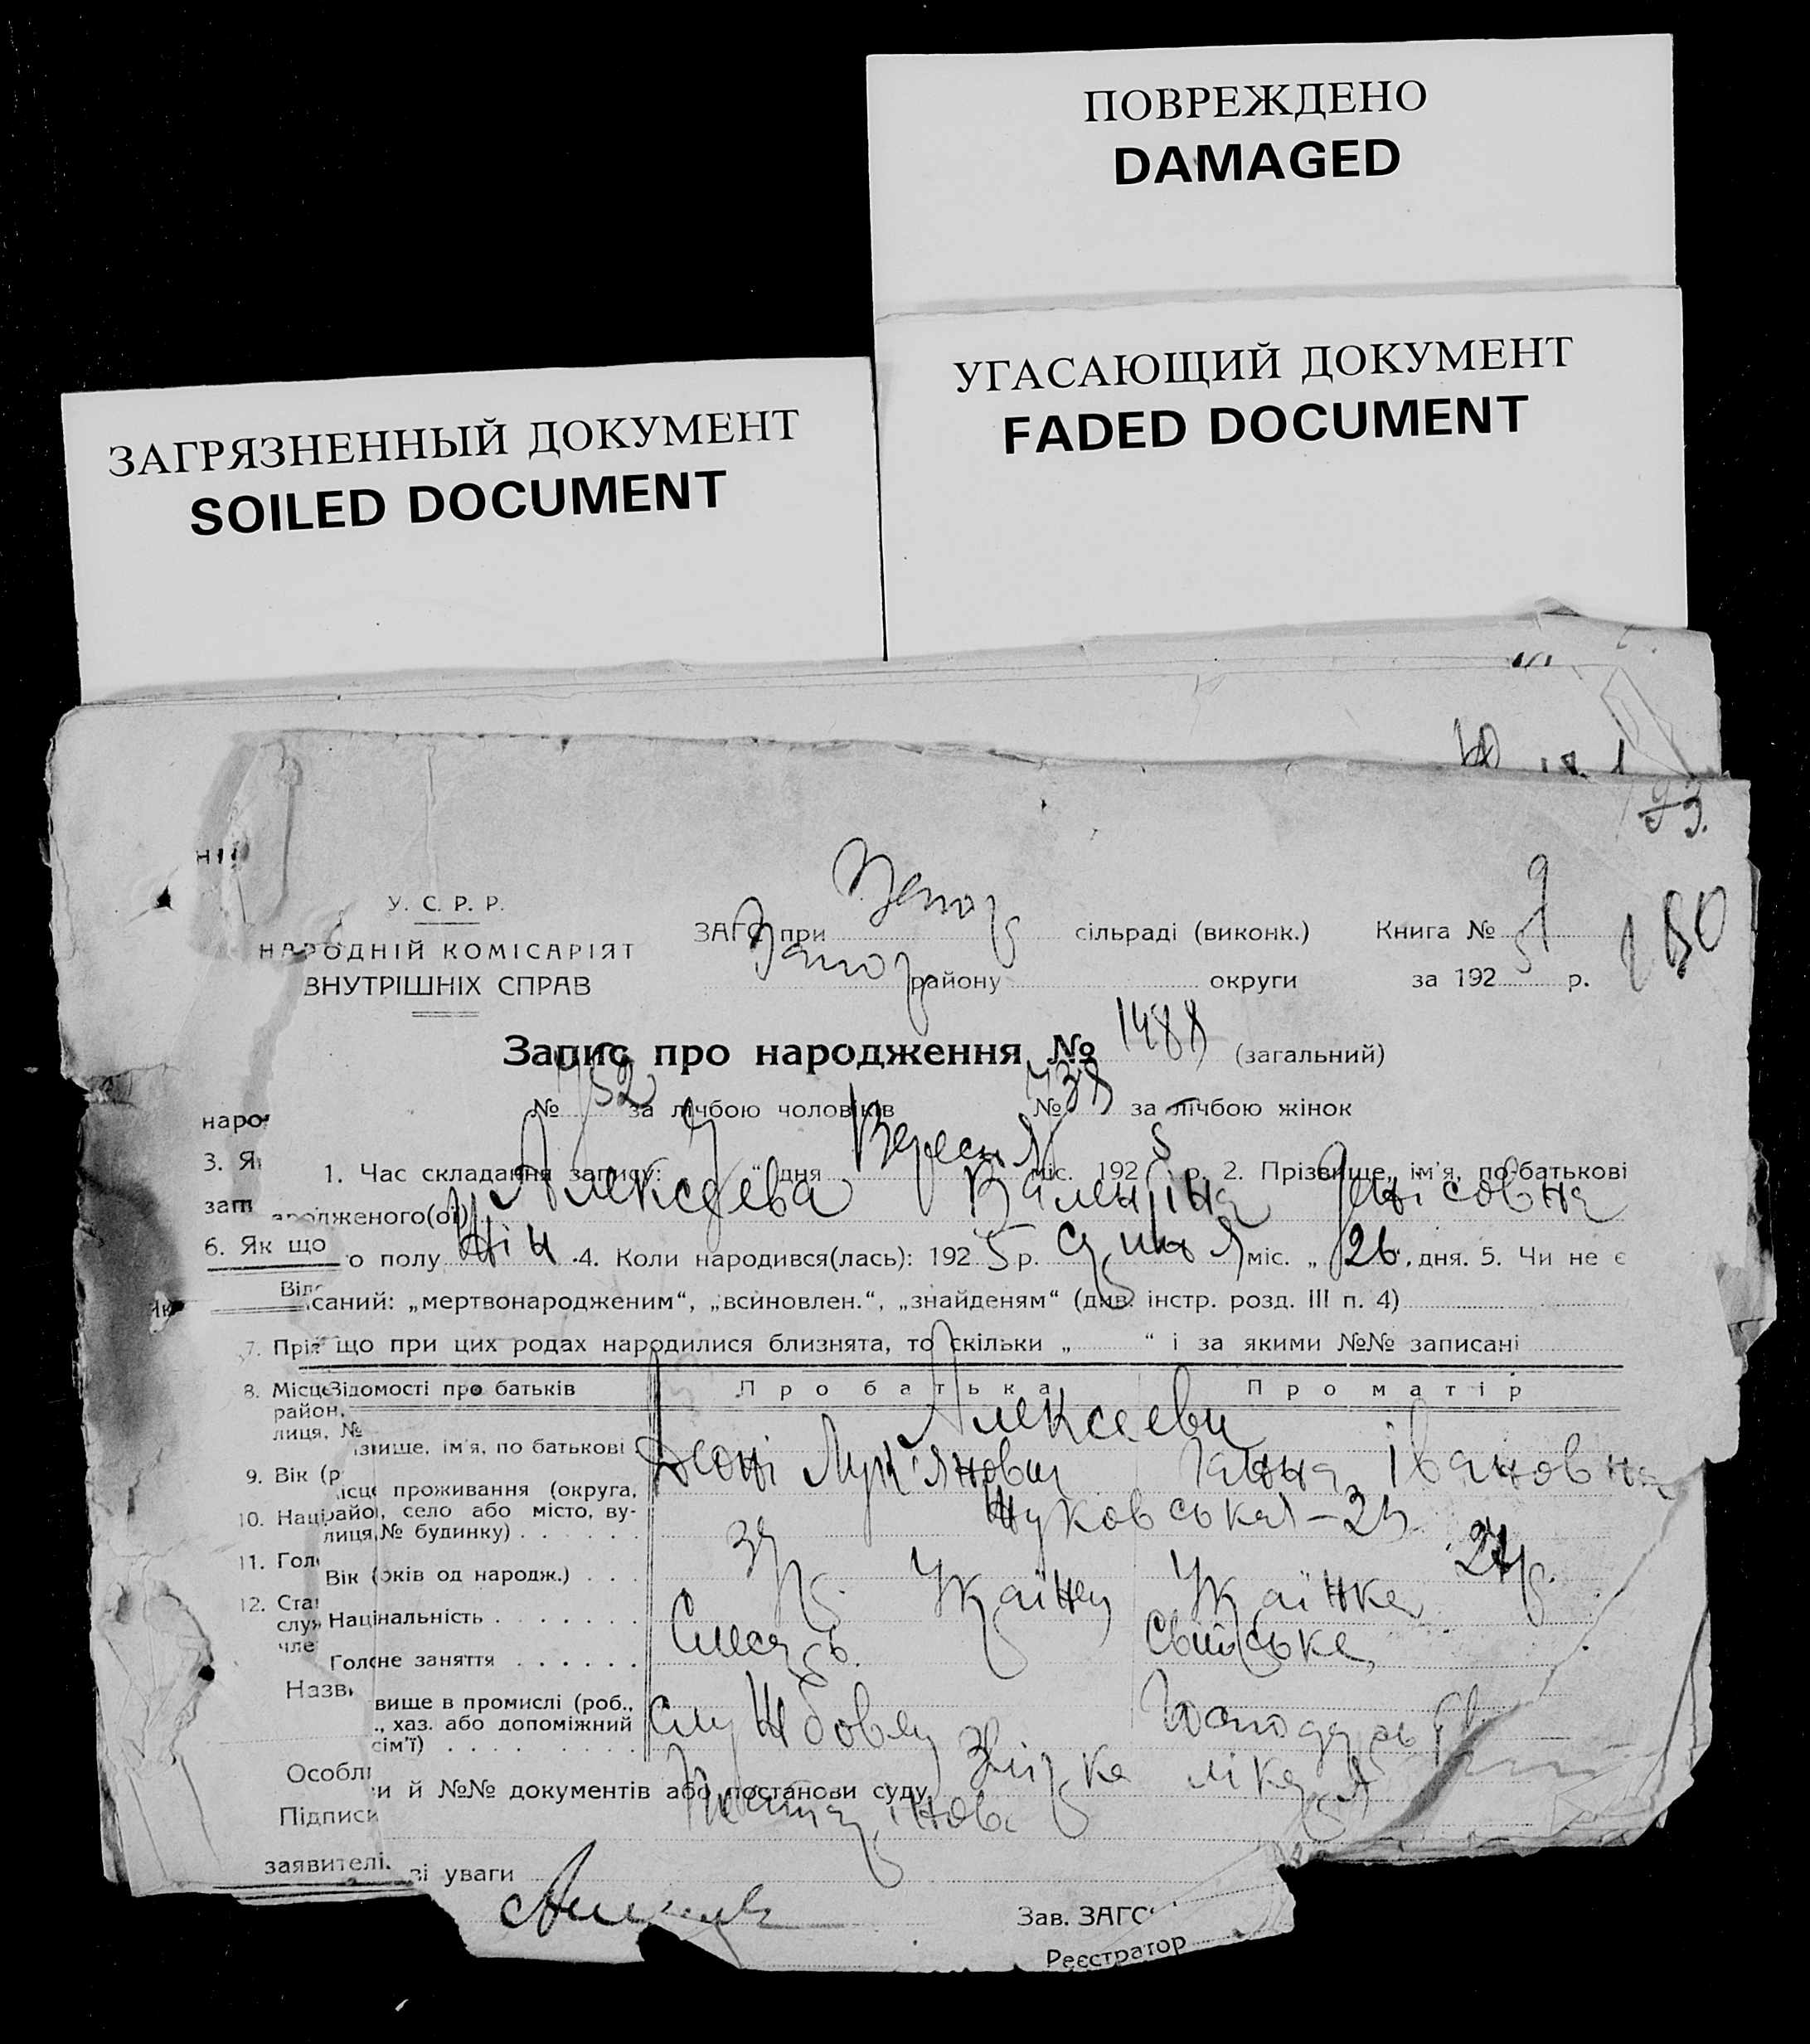 ПОВРЕЖДЕНО
DAMAGED
УГАСАЮЩИЙ ДОКУМЕНТ
FADED DOCUMENT
ЗАГРЯЗНЕННЫЙ ДОКУМЕНТ
SOILED DOCUMENT
93.
У. С. Р. Р.
НАРОДНІЙ КОМІСАРІЯТ
ВНУТРІШНІХ СПРАВ
ЗАГС при Запор сільраді (виконк.) Книга № 9
Запор району округи за 192 5 р.
180
Запис про народження № 1488 (загальний)
№ 752 за лічбою чоловіків № за лічбою жінок
наро
3. Я
1. Час складання запису: „ “ дня Вересня міс. 192 5 р. 2. Прізвище, ім'я, по-батькові
зат
ародженого(ої) Алексєева Валентіна Денісовна
6. Як що
о полу Жін 4. Коли народився(лась): 192 5 р. Серпня міс. „ 26 “ дня. 5. Чи не є
саний: „мертвонародженим“, „всиновлен.“, „знайденям“ (див. інстр. розд. III п. 4)
7. Пріз
що при цих родах народилися близнята, то скільки „ “ і за якими №№ записані
8. Місце
район,
лиця, №
Відомості про батьків Про батька Про матір
Алексєеви
ізвище, ім'я, по батькові Деоні Лук'янович Ганна Івановна
9. Вік (р
10. Наці
ісце проживання (округа,
район, село або місто, ву-
лиця № будинку) Жуковська – 23
11. Гол
Вік (років од народж.) 24 р.
12. Ста
служ
чле
Національність Украінец Украінка
Головне заняття Слесарь. Свійська
Назв
вище в промислі (роб.,
., хаз. або допоміжний
сім'ї) Службовец Господарь
Особл
и й №№ документів або постанови суду Звірка лікаря
Підписи
заявителі
ві уваги
Зав. ЗАГС
Реєстратор